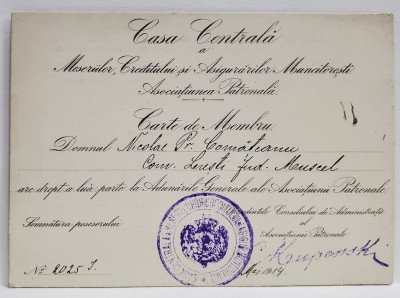 Casa Centrală
a
Meseriilor, Creditului și Asigurărilor Muncitorești
Asociațiunea Patronală.
Carte de Membru
Domnul Nicolae Pr. Comăteanu
Com. Lerești Jud. Muscel
are drept a lua parte la Adunările Generale ale Asociațiunii Patronale
Semnătura posesorului
Președintele Consiliului de Administrație
al
Asociațiunii Patronale
No. 2025 I.
Mai 1914